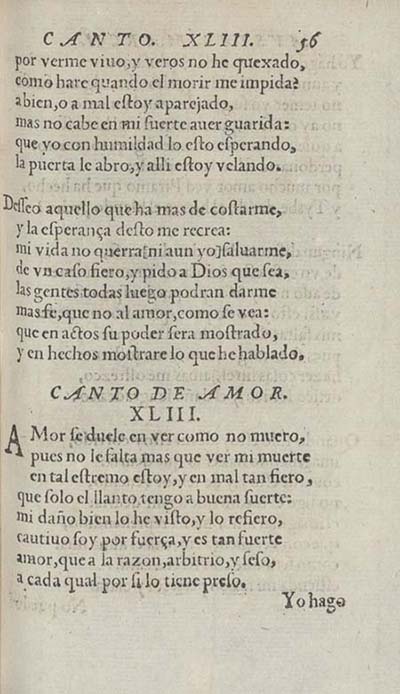 CANTO. XLIII. 56
por verme viuo, y veros no he quexado,
como hare quando el morir me impida?
a bien, o a mal estoy aparejado,
mas no cabe en mi suerte auer guarida:
que yo con humildad lo esto esperando,
la puerta le abro, y alli estoy velando.
Desseo aquello que ha mas de costarme,
y la esperança desto me recrea:
mi vida no querra [ni aun yo] saluarme,
de vn caso fiero, y pido a Dios que sea,
las gentes todas luego podran darme
mas fe, que no al amor, como se vea:
que en actos su poder sera mostrado,
y en hechos mostrare lo que he hablado.
CANTO DE AMOR.
XLIII.
AMor se duele en ver como no muero,
pues no le falta mas que ver mi muerte
en tal estremo estoy, y en mal tan fiero,
que solo el llanto tengo a buena suerte:
mi daño bien lo he visto, y lo refiero,
cautiuo soy por fuerça, y es tan fuerte
amor, que a la razon, arbitrio, y seso,
a cada qual por si lo tiene preso.
Yo hago